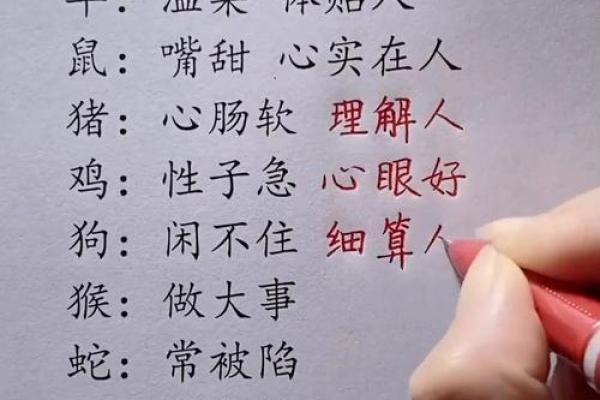 羊：温柔 体贴人
鼠：嘴甜 心实在人
猪：心肠软 理解人
鸡：性子急 心眼好
狗：闲不住 细算人
猴：做大事
蛇：常被陷